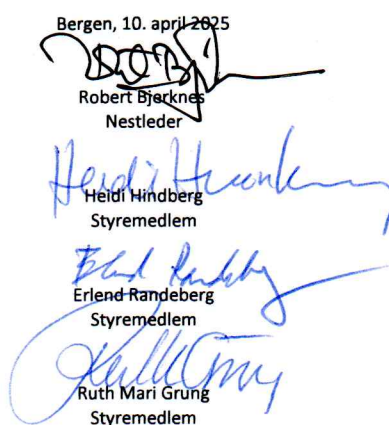 Bergen, 10. april 2025
Robert Bjerknes
Nestleder
Heidi Hindberg
Styremedlem
Erlend Randeberg
Styremedlem
Ruth Mari Grung
Styremedlem